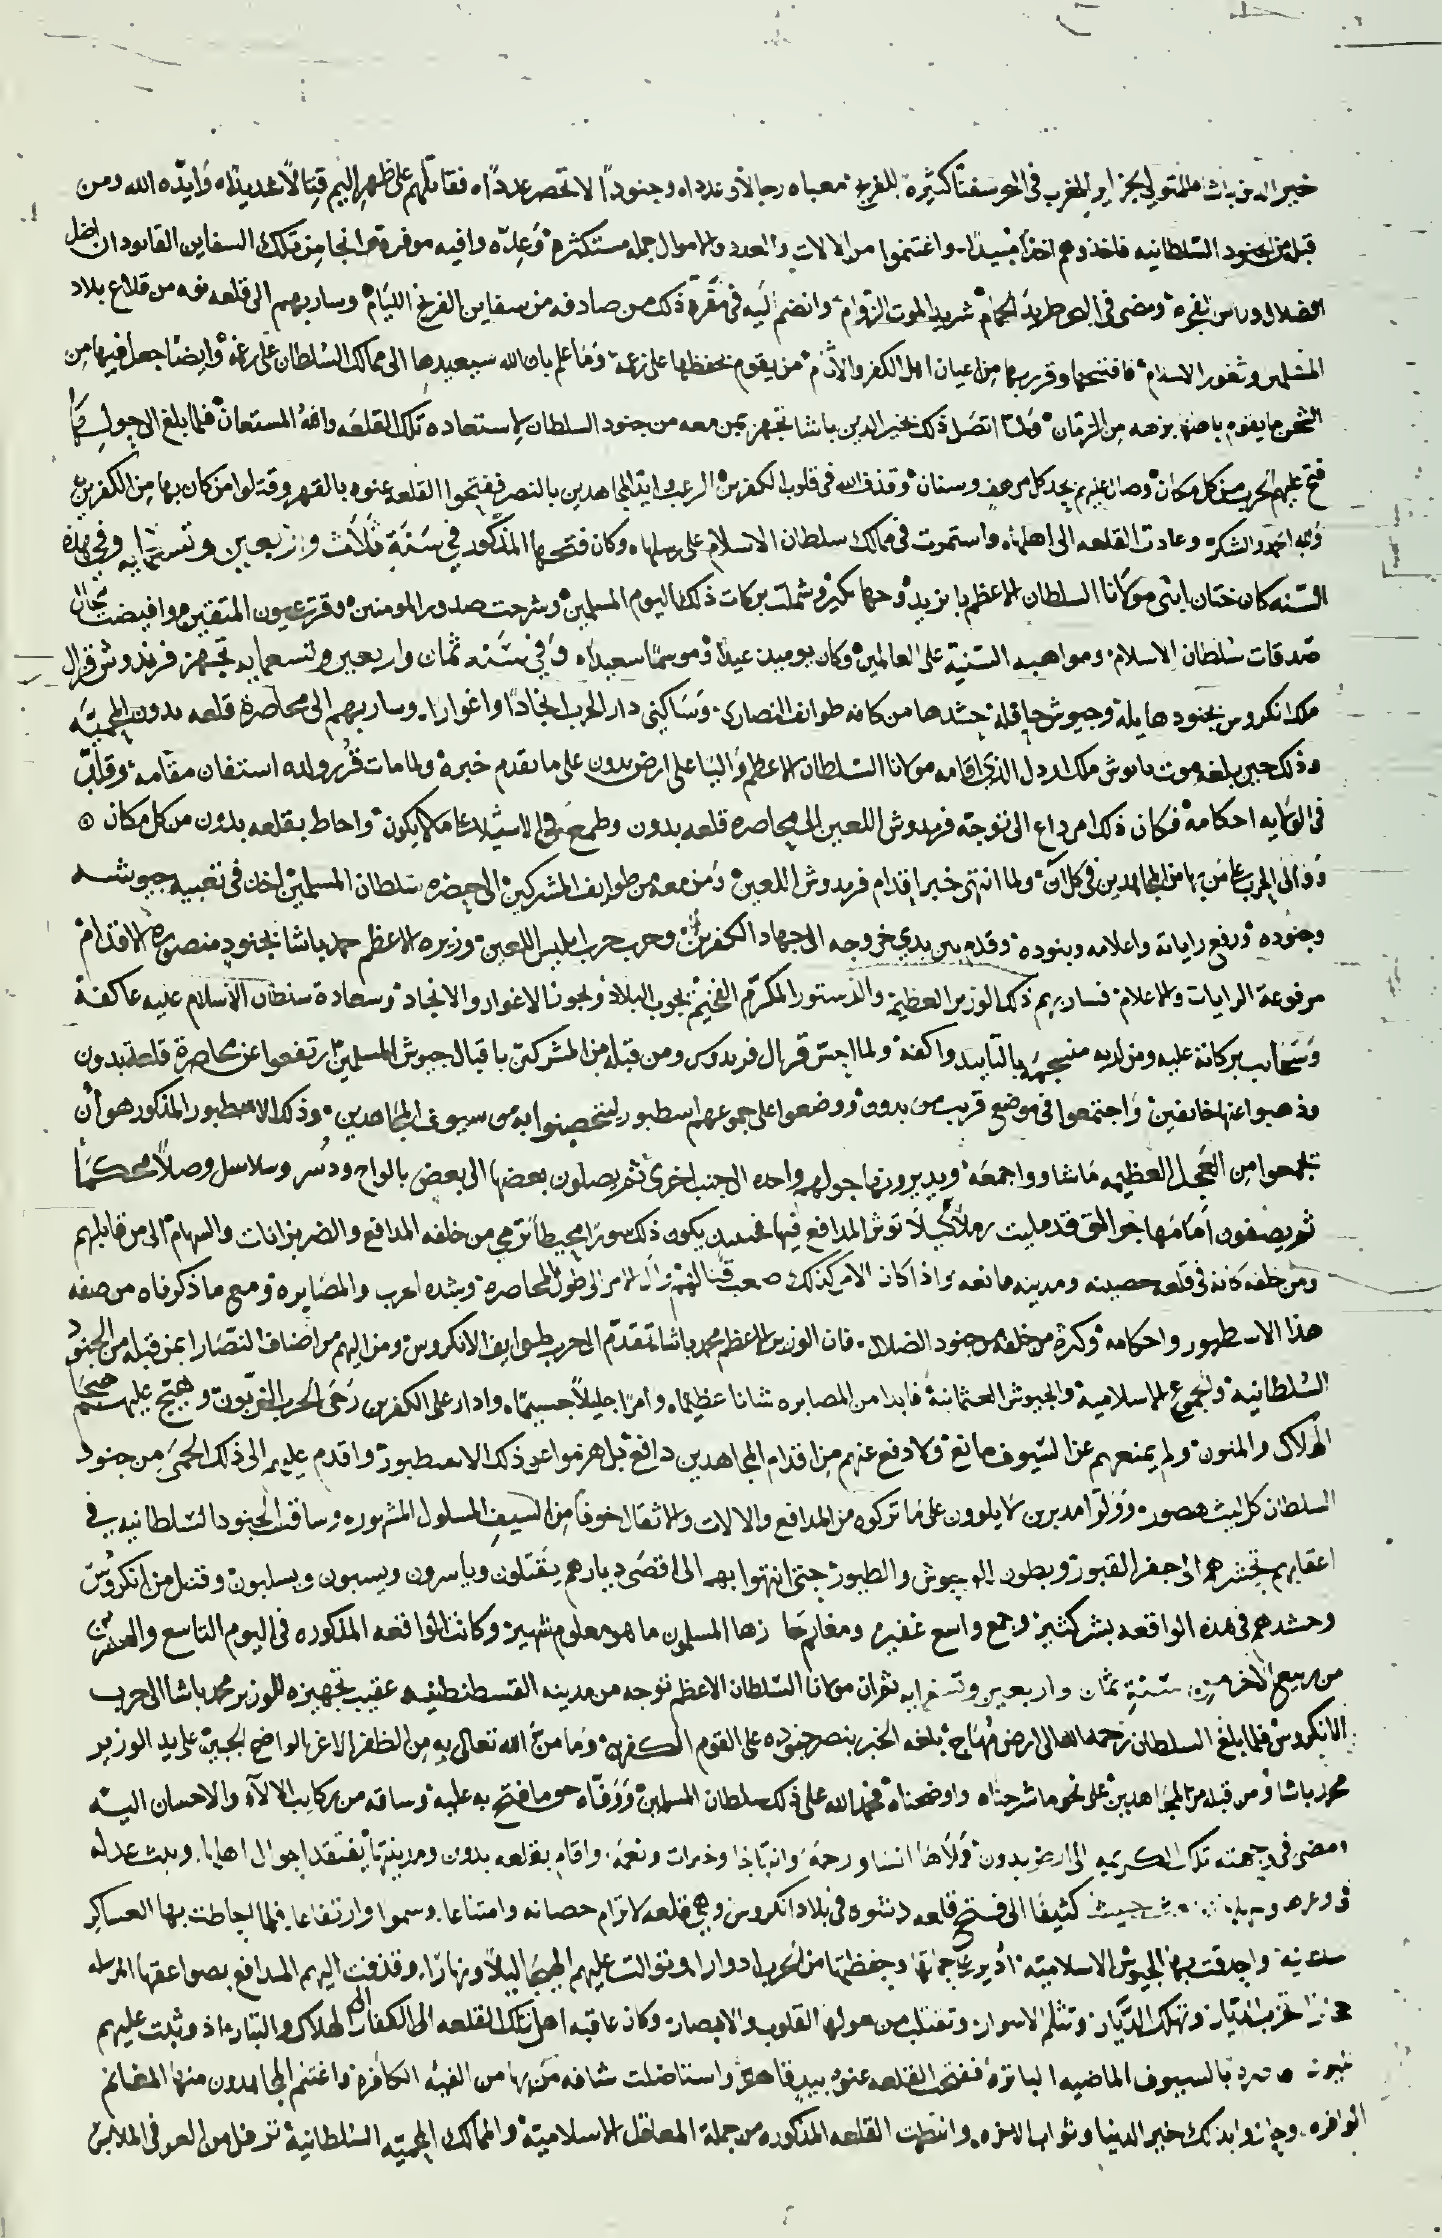 خير الدين باشا المتولي لجزاير المغرب في البحر سفنا كثيرة للفرنج معباه رجالا وعدداه وجنودا لا تحصر عدداه فقاتلهم على ظهر اليم قتالا شديداه وايده الله ومن
قبله من الجنود السلطانيه فاخذوهم اخذا مبيدا واغتنموا من الالات والعدد والاموال جمله مستكثرة وعده وافيه موفرة وانجا من تلك السفاين القابودان اصل
الضلال وراس الفجره ومضى في البحر طريد الحمام شريد الموت الزوام وانضم اليه في مفره ذلك من صادفه من سفاين الفرنج الليام وسار بهم الى قلعه نوه من قلاع بلاد
المسلمين وثغور الاسلام فافتتحها وقرر بها من اعيان اهل الكفر والاثام من يقوم بحفظها على زعمه وما علم بان الله سيعيدها الى ممالك السلطان على رغمه وايضا جعل فيها من
الشحن ما يقوم باهلها برهه من الزمان ولما اتصل ذلك بخير الدين باشا تجهز بمن معه من جنود السلطان لاستعادة تلك القلعه والله المستعان فلما بلغ الى حوليها
فتح عليهم الحرب من كل مكان وصال عليهم بحد كل مرهف وسنان وقذف الله في قلوب الكفرين الرعب وايد المجاهدين بالنصر ففتحوا القلعه عنوه بالقهر وقتلوا من كان بها من الكفرين
ولله الحمد والشكر وعادت القلعه الى اهلهاه واستمرت في ممالك سلطان الاسلام على رسلهاه وكان فتحها المذكور في سنة ثلاث واربعين وتسعمايه وفي هذه
السنه كان ختان ابني مولانا السلطان الاعظم بايزيد وجهانكير وشملت بركات ذلك اليوم المسلمين وشرحت صدور المومنين وقرت عيون المتقين وافيضت سجال
صدقات سلطان الاسلام ومواهبه السنية على العالمين وكان يوميذ عيدا وموسما سعيداه وفي سنه ثمان واربعين وتسعمايه تجهز فرندوش قرال
ملك انكروس بجنود هايله وجيوش حافله حشدها من كافه طوايف النصارى وساكني دار الحرب انجادا واغوارا وسار بهم الى محاصرة قلعه بدون المحميه
وذلك حين بلغه موت يانوش ملك اردل الذي اقامه مولانا السلطان الاعظم واليا على ارض بدون على ما تقدم خبره ولما مات قرر ولده استفان مقامه وقلد
في الولايه احكامه فكان ذلك امر داع الى توجه فرندوش اللعين الى محاصره قلعه بدون وطمع في الاستيلا عليها لا يكون واحاط بقلعه بدون من كل مكان
ووالى الحرب على من بها من المجاهدين في كل آن ولما انتهى خبر اقدام فرندوش اللعين ومن معه من طوايف المشركين الى حضره سلطان المسلمين اخذ في تعبيه جيوشه
وجنوده ورفع راياته واعلامه وبنوده وقدم بين يدي خروجه الى جهاد الكفرين وحرب حزب ابليس اللعين وزيره الاعظم محمد باشا بجنود منصوره الاقدام
مرفوعة الرايات والاعلام فسار بهم ذلك الوزير العظيم والدستور المكرم الفخيم يجوب البلاد ويجوز الاغوار والانجاد وسعادة سلطان الاسلام عليه عاكفة
وسحايب بركاته عليه ومن لديه منسجمه بالتاييد واكفة ولما احس قرال فرندوس ومن قبله من المشركين باقبال جيوش المسلمين ارتفعوا عن محاصرة قلعة بدون
وذهبوا عنها خايفين واجتمعوا في موضع قريب من بدون ووضعوا على جموعهم اسطبور ليتحصنوا به من سيوف المجاهدين وذلك الاسطبور المذكور هو ان
يجمعوا من العجل العظيمه ما شاوا جمعه ويديرونها حولهم واحده الى جنب اخرى ثم يصلون بعضها الى بعض بالواح ودسر وسلاسل وصلا محكما
ثم يصفون امامها جوالق قد مليت رملا كيلا توثر المدافع فيها فحينئذ يكون ذلك سورا محيطا ترمي من خلفه المدافع والضربزانات والسهام الى من قابلهم
ومن خلفه كانه في قلعه حصينه ومدينه مانعه واذا كان الامر كذلك صعب قتالهم الا الى طول المحاصره وشده الحرب والمصابره ومع ما ذكرناه من صفه
هذا الاسطبور واحكامه وكثرة من خلفه من جنود الضلال فان الوزير الاعظم محمد باشا تقدم الى حرب طوايف الانكروس ومن اليهم من اصناف النصارا بمن قبله من الجنود
السلطانيه والجموع الاسلاميه والجيوش العثمانية فابدا من المصابره شانا عظيماه وامرا جليلا جسيماه وادار على الكفرين رحى الحرب الزبون وهيج عليهم
الهلاك والمنون ولم يمنعهم عن السيوف مانع ولا دفع عنهم من اقدام المجاهدين دافع بل هزموا عن ذلك الاسطبور واقدم عليهم الى ذلك الحمى من جنود
السلطان كل ليث هصور وولوا مدبرين لا يلوون على ما تركوه من المدافع والالات والاثقال خوفا من السيف المسلول المشهور وساقت الجنود السلطانيه في
اعقابهم تحشرهم الى حفر القبور وبطون الوحوش والطيور حتى انتهوا بهم الى اقصى ديارهم يقتلون وياسرون ويسبون ويسلبون وقتل من انكروس
وحشدهم في هذه الواقعه بشر كثير وجمع واسع غفير ومغانم حازها المسلمون ما هو معلوم شهير وكانت الواقعه المذكوره في اليوم التاسع والعشرين
من ربيع الاخر من سنة ثمان واربعين وتسعمايه ثم ان مولانا السلطان الاعظم توجه من مدينه القسطنطينيه عقيب تجهيزه للوزير محمد باشا الى حرب
الانكروس فلما بلغ السلطان رحمه الله الى ارض مهاج بلغه الخبر بنصر جنوده على القوم الكفرين وما من الله تعالى به من الظفر الاغر الواضح الجبين على يد الوزير
محمد باشا ومن قبله من المجاهدين على نحو ما شرحناه واوضحناه فحمد الله على ذلك سلطان المسلمين ووفاه حق ما فتح به عليه وساقه من ركايب الالاء والاحسان اليه
ومضى في وجهته تلك الكريمه الى ارض بدون فملاها انسا ورحمة وانتاجا وخيرات ونعمه واقام بقلعه بدون ومدينتها يتفقد احوال اهلها وبث عدله
في وعرها وسهلها جيشا كثيفا الى فتح قلعه دشوه في بلاد انكروس وهي قلعه لا ترام حصانه وامتناعا وسموا وارتفاعا فلما احاطت بها العساكر
واحدقت بها الجيوش الاسلاميه اديرت على حماتها وحفظتها من الحرب ادوارا وتوالت عليهم الهيجا ليلا ونهارا وقذفت اليهم المدافع بصواعقها المرسله
تخرب الديار وتهلك الديار وتثلم الاسوار وتتقلب من هولها القلوب والابصار وكان عاقبه اهل تلك القلعه الكفار الى الهلاك والتبار اذ وثبت عليهم
بالسيوف الماضيه الباتره ففتحت القلعه عنوه بيد قاهره واستاصلت شافه من بها من الفيه الكافره واغتنم المجاهدون منها المغانم
الوافره وحازوا بذلك خير الدنيا وثواب الاخره وانتظمت القلعه المذكوره من جملة المعاقل الاسلاميه والممالك المحميه السلطانيه ترفل من العز في الملابس